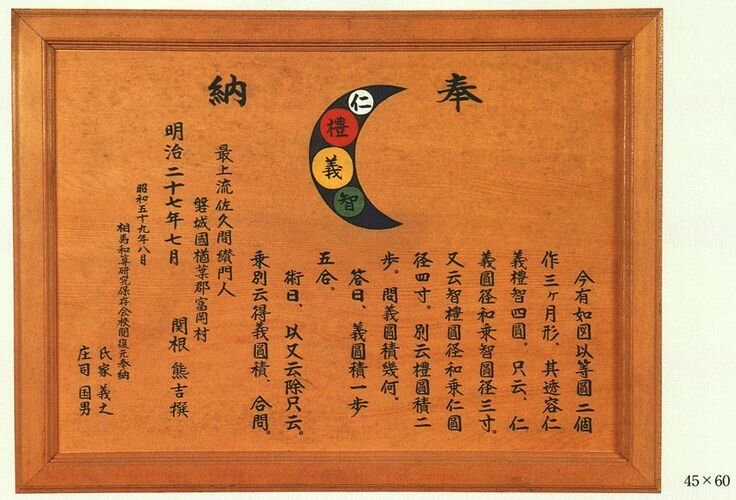 奉納
仁
禮
義
智
今有如図以等圓二個
作三ヶ月形、其透容仁
義禮智四圓。只云、仁
義圓径和乗智圓径三寸。
又云智禮圓径和乗仁圓
径四寸。別云禮圓積二
歩。問義圓積幾何。
答曰、義圓積一歩
五合。
術曰、以又云除只云。
乗別云得義圓積、合問。
最上流佐久間纉門人
磐城國楢葉郡富岡村
関根熊吉撰
明治二十七年七月
昭和五十九年八月
相馬和算研究保存会校閲復元奉納
氏家義之
庄司国男
45×60